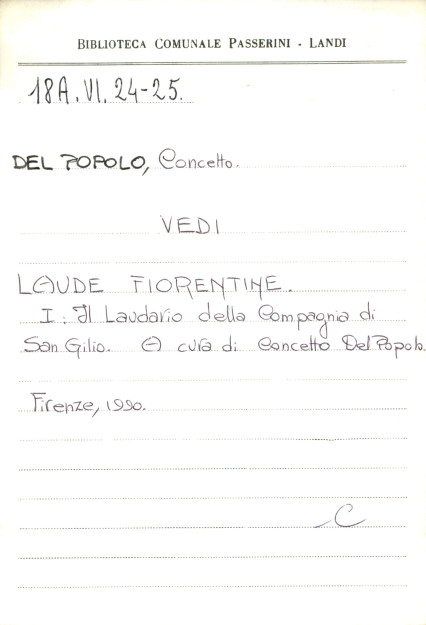 BIBLIOTECA COMUNALE PASSERINI - LANDI
18A.VI.24-25.
DEL POPOLO, Concetto.
VEDI
LAUDE FIORENTINE.
I: Il Laudario della Compagnia di
San Gilio. A cura di Concetto Del Popolo.
Firenze, 1990.
C